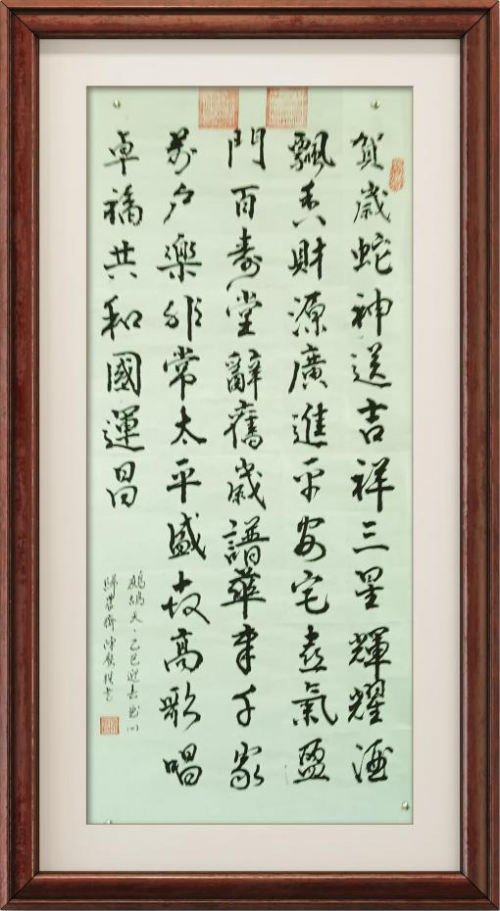 賀歲蛇神送吉祥三星輝耀酒
飄香財源廣進平安宅喜氣盈
門百壽堂辭舊歲譜華章千家
萬户樂非常太平盛世高歌唱
卓禧共和國運昌
鷓鴣天·乙巳迎春
歸農齋陳